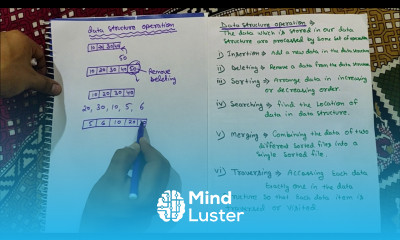 data structure operation
10 20 30 40
50
10 20 30 40 50
Remove
deleting
10 20 30 40
20, 30, 10, 5, 6
5 6 10 20
Data structure operation
The data which is stored in our data
structure are processed by some set of operation
i) Insertion Add a new data in the data structure
ii) Deleting Remove a data from the data structure
iii) Sorting Arrange data in increasing
or decreasing order.
iv) Searching find the location of
data in data structure.
v) Merging Combining the data of two
different sorted files into a
single sorted file.
vi) Traversing Accessing each data
exactly one in the data
structure so that each data item is
traversed or visited.
Mind
Luster